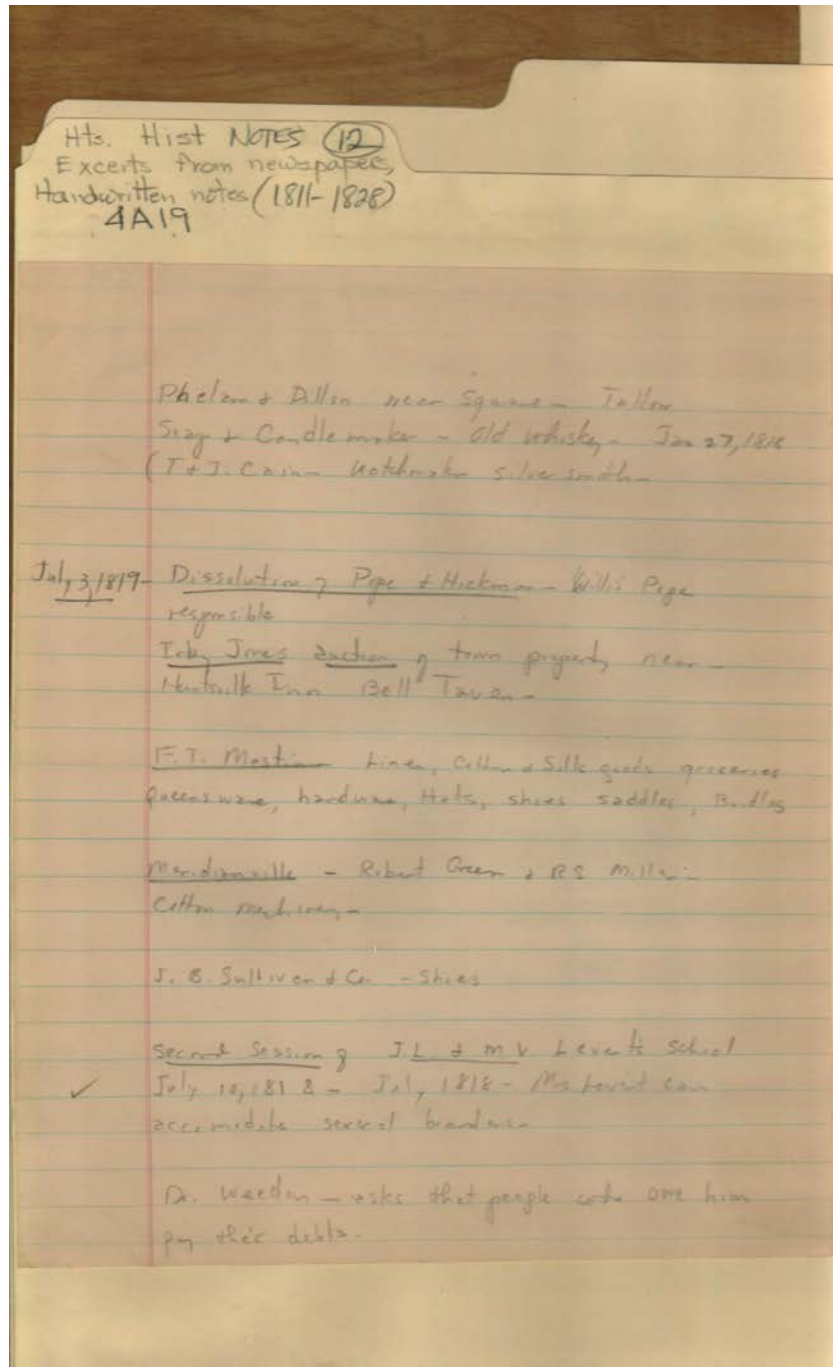 Hts. Hist NOTES (12)
Excerts from newspapers,
Handwritten notes (1811-1828)
4A19
Phelan & Dillon near Square - Tallow
Soap & Candle maker - Old Whiskey - Jan 27, 1818
(T & J. Cain - Watchmaker silversmith -
July 3, 1819 - Dissolution of Pope & Hickman - Willis Pope
responsible
Irby Jones auction of town property near -
Huntsville Inn Bell Tavern -
F.T. Mastin Linen, Cotton & Silk goods groceries
Queensware, hardware, Hats, shoes saddles, Bridles
Meridianville - Robert Green & RS Miller -
Cotton machinery -
J. B. Sullivan & Co. - Shoes
Second Session of J.L. & M V Levert's School
July 10, 1818 - July, 1818 - Mrs Levert can
accomidate several boarders -
Dr. Weeden - asks that people who owe him
pay their debts.